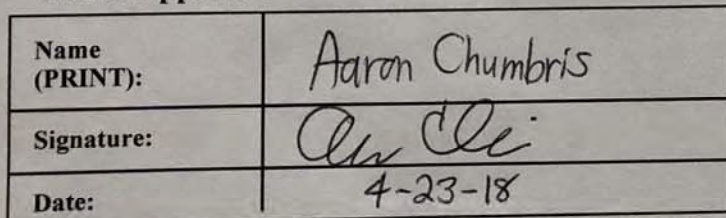 Name
(PRINT):
Aaron Chumbris
Signature:
Date:
4-23-18